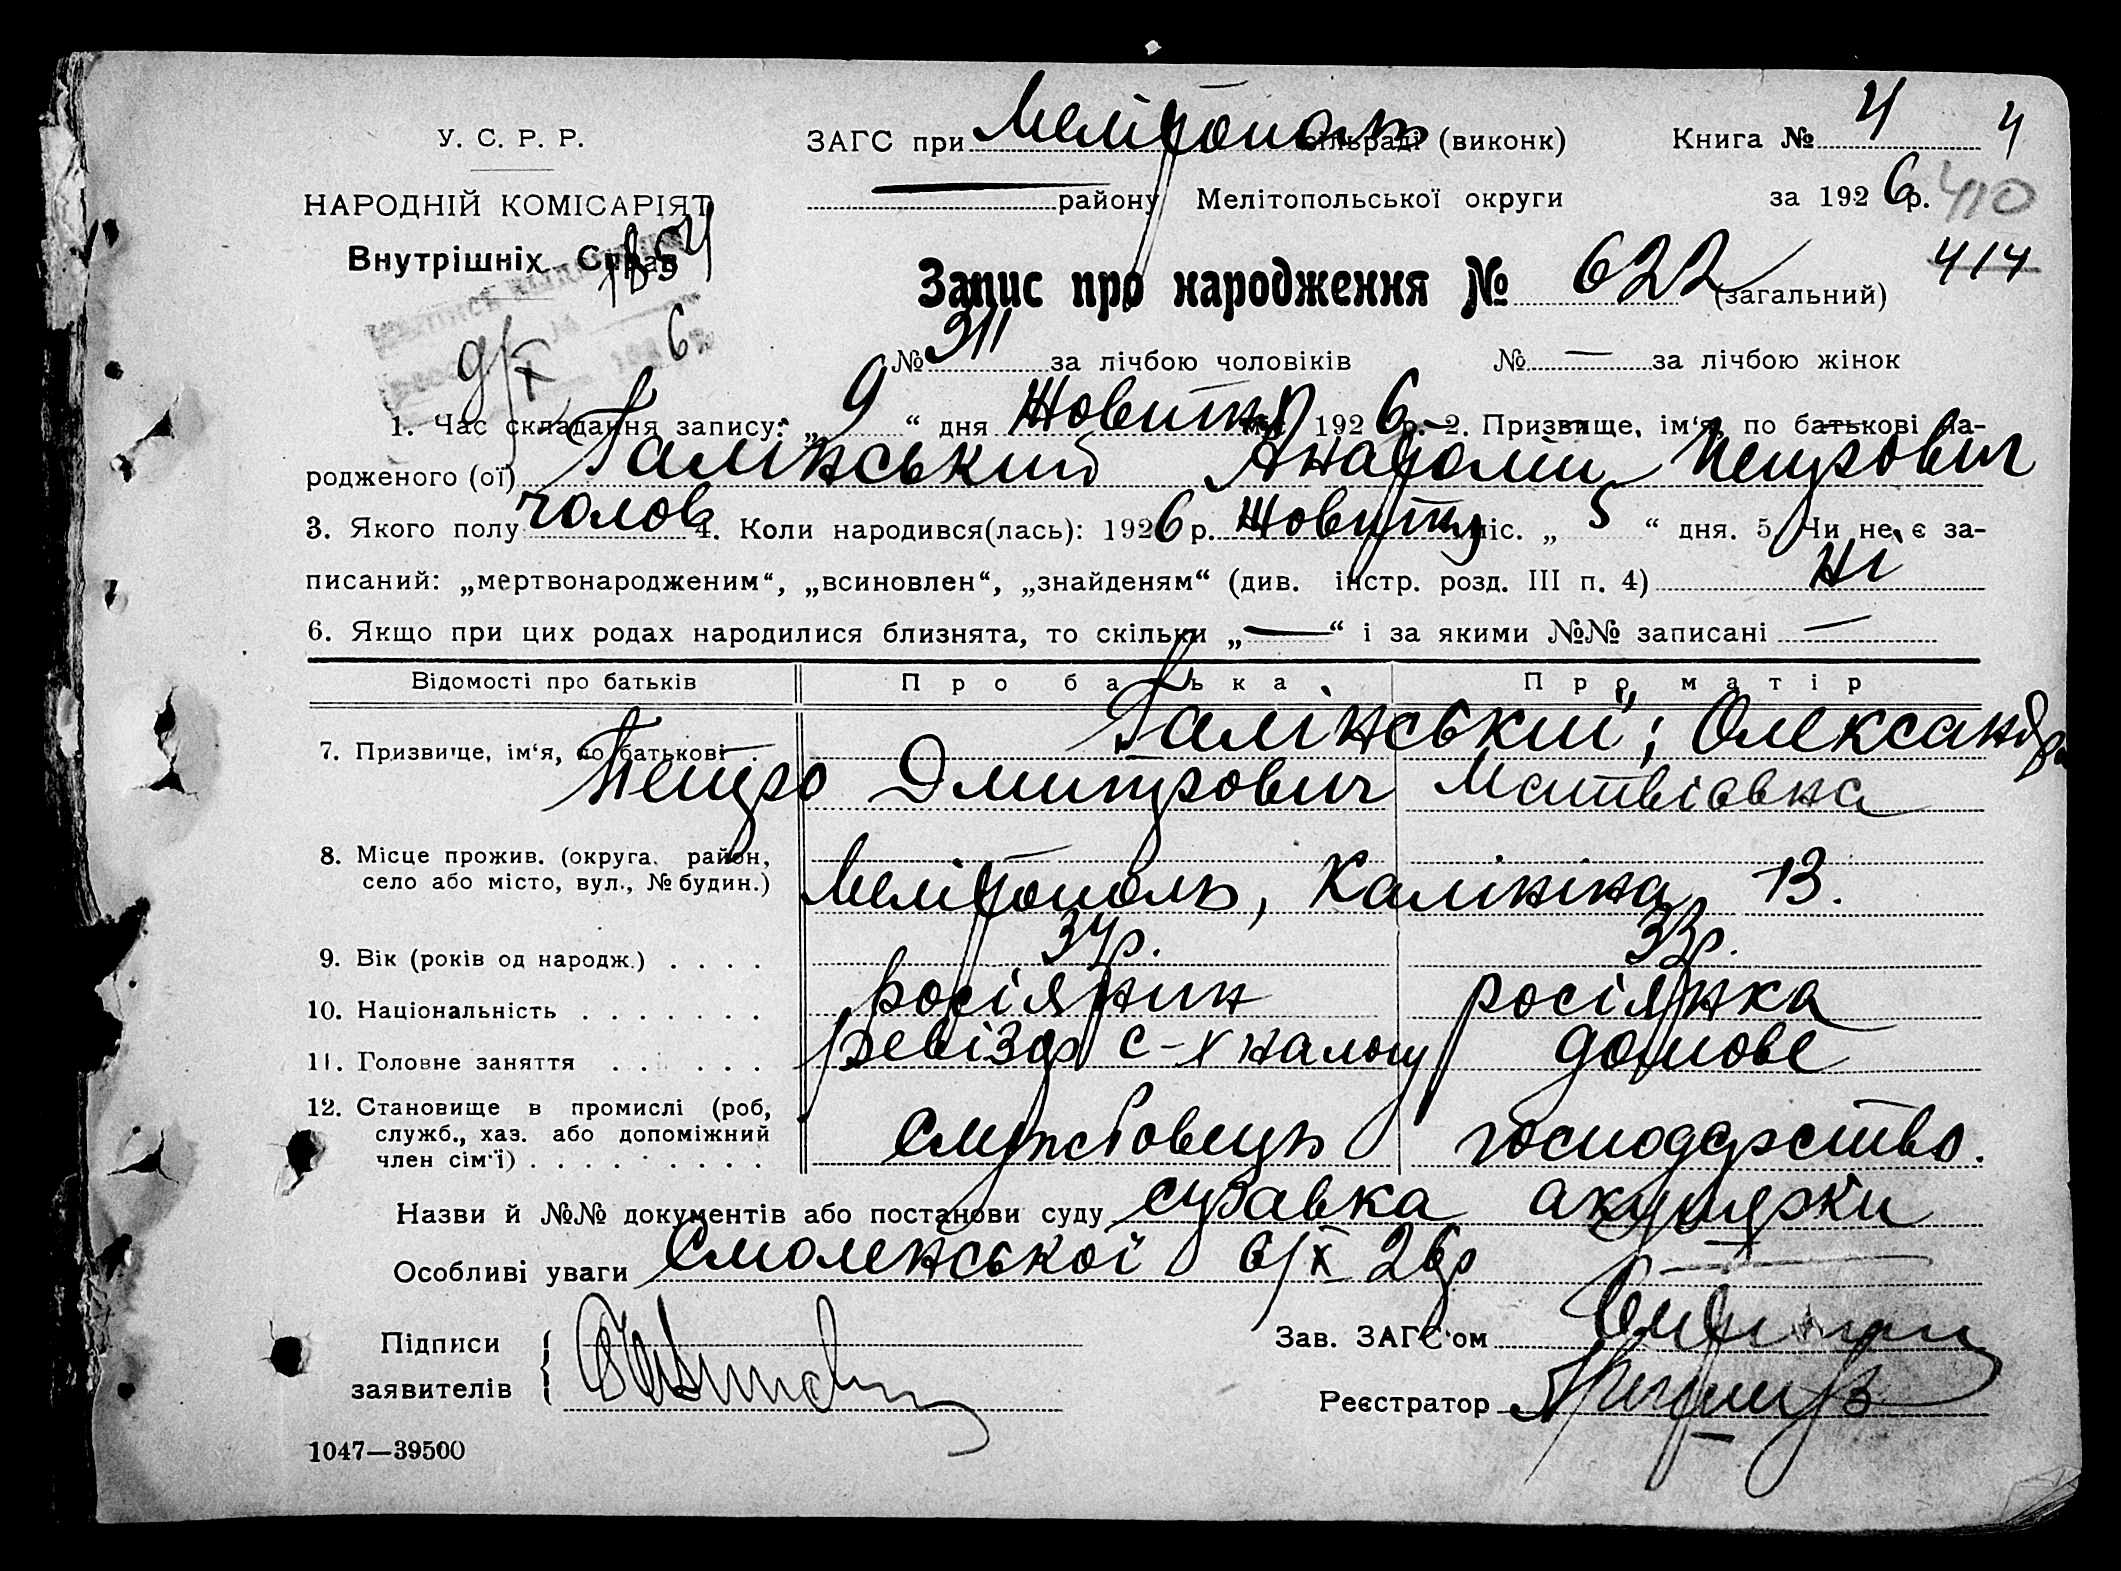 У. С. Р. Р.
ЗАГС при Мелітополь сільраді (виконк) Книга № 4 4
НАРОДНІЙ КОМІСАРІЯТ району Мелітопольської округи за 1926 р. 410
Внутрішніх Справ 1854
Запис про народження № 622 (загальний) 414
9/X 6
№ 311 за лічбою чоловіків № — за лічбою жінок
1. Час складання запису: „ 9 “ дня Жовтня міс. 1926 р. 2. Призвище, ім‘я, по батькові на-
родженого (ої) Галінський Анатолій Петрович
3. Якого полу чолов 4. Коли народився(лась): 1926 р. Жовтня міс. „ 5 “ дня. 5. Чи не є за-
писаний: „мертвонародженим“, „всиновлен“, „знайденям“ (див. інстр. розд. III п. 4) Ні
6. Якщо при цих родах народилися близнята, то скільки „ — “ і за якими №№ записані —
Відомості про батьків Про батька Про матір
7. Призвище, ім‘я, по батькові Галінський; Олександра
Петро Дмитрович Матвіівна
8. Місце прожив. (округа, район,
село або місто, вул., № будин.) Мелітополь, Калініна, 13.
9. Вік (років од народж.) . . . . 34р. 33р.
10. Національність . . . . . . . росіянин росіянка
11. Головне заняття . . . . . . ревізор с-х налогу домове
12. Становище в промислі (роб,
служб., хаз. або допоміжний
член сім‘ї) . . . . . . . . . . службовець господарство.
Назви й №№ документів або постанови суду справка акушерки
Особливі уваги Смоленської 6/X 26р
Підписи
заявителів
Зав. ЗАГС‘ом
Реєстратор
1047—39500